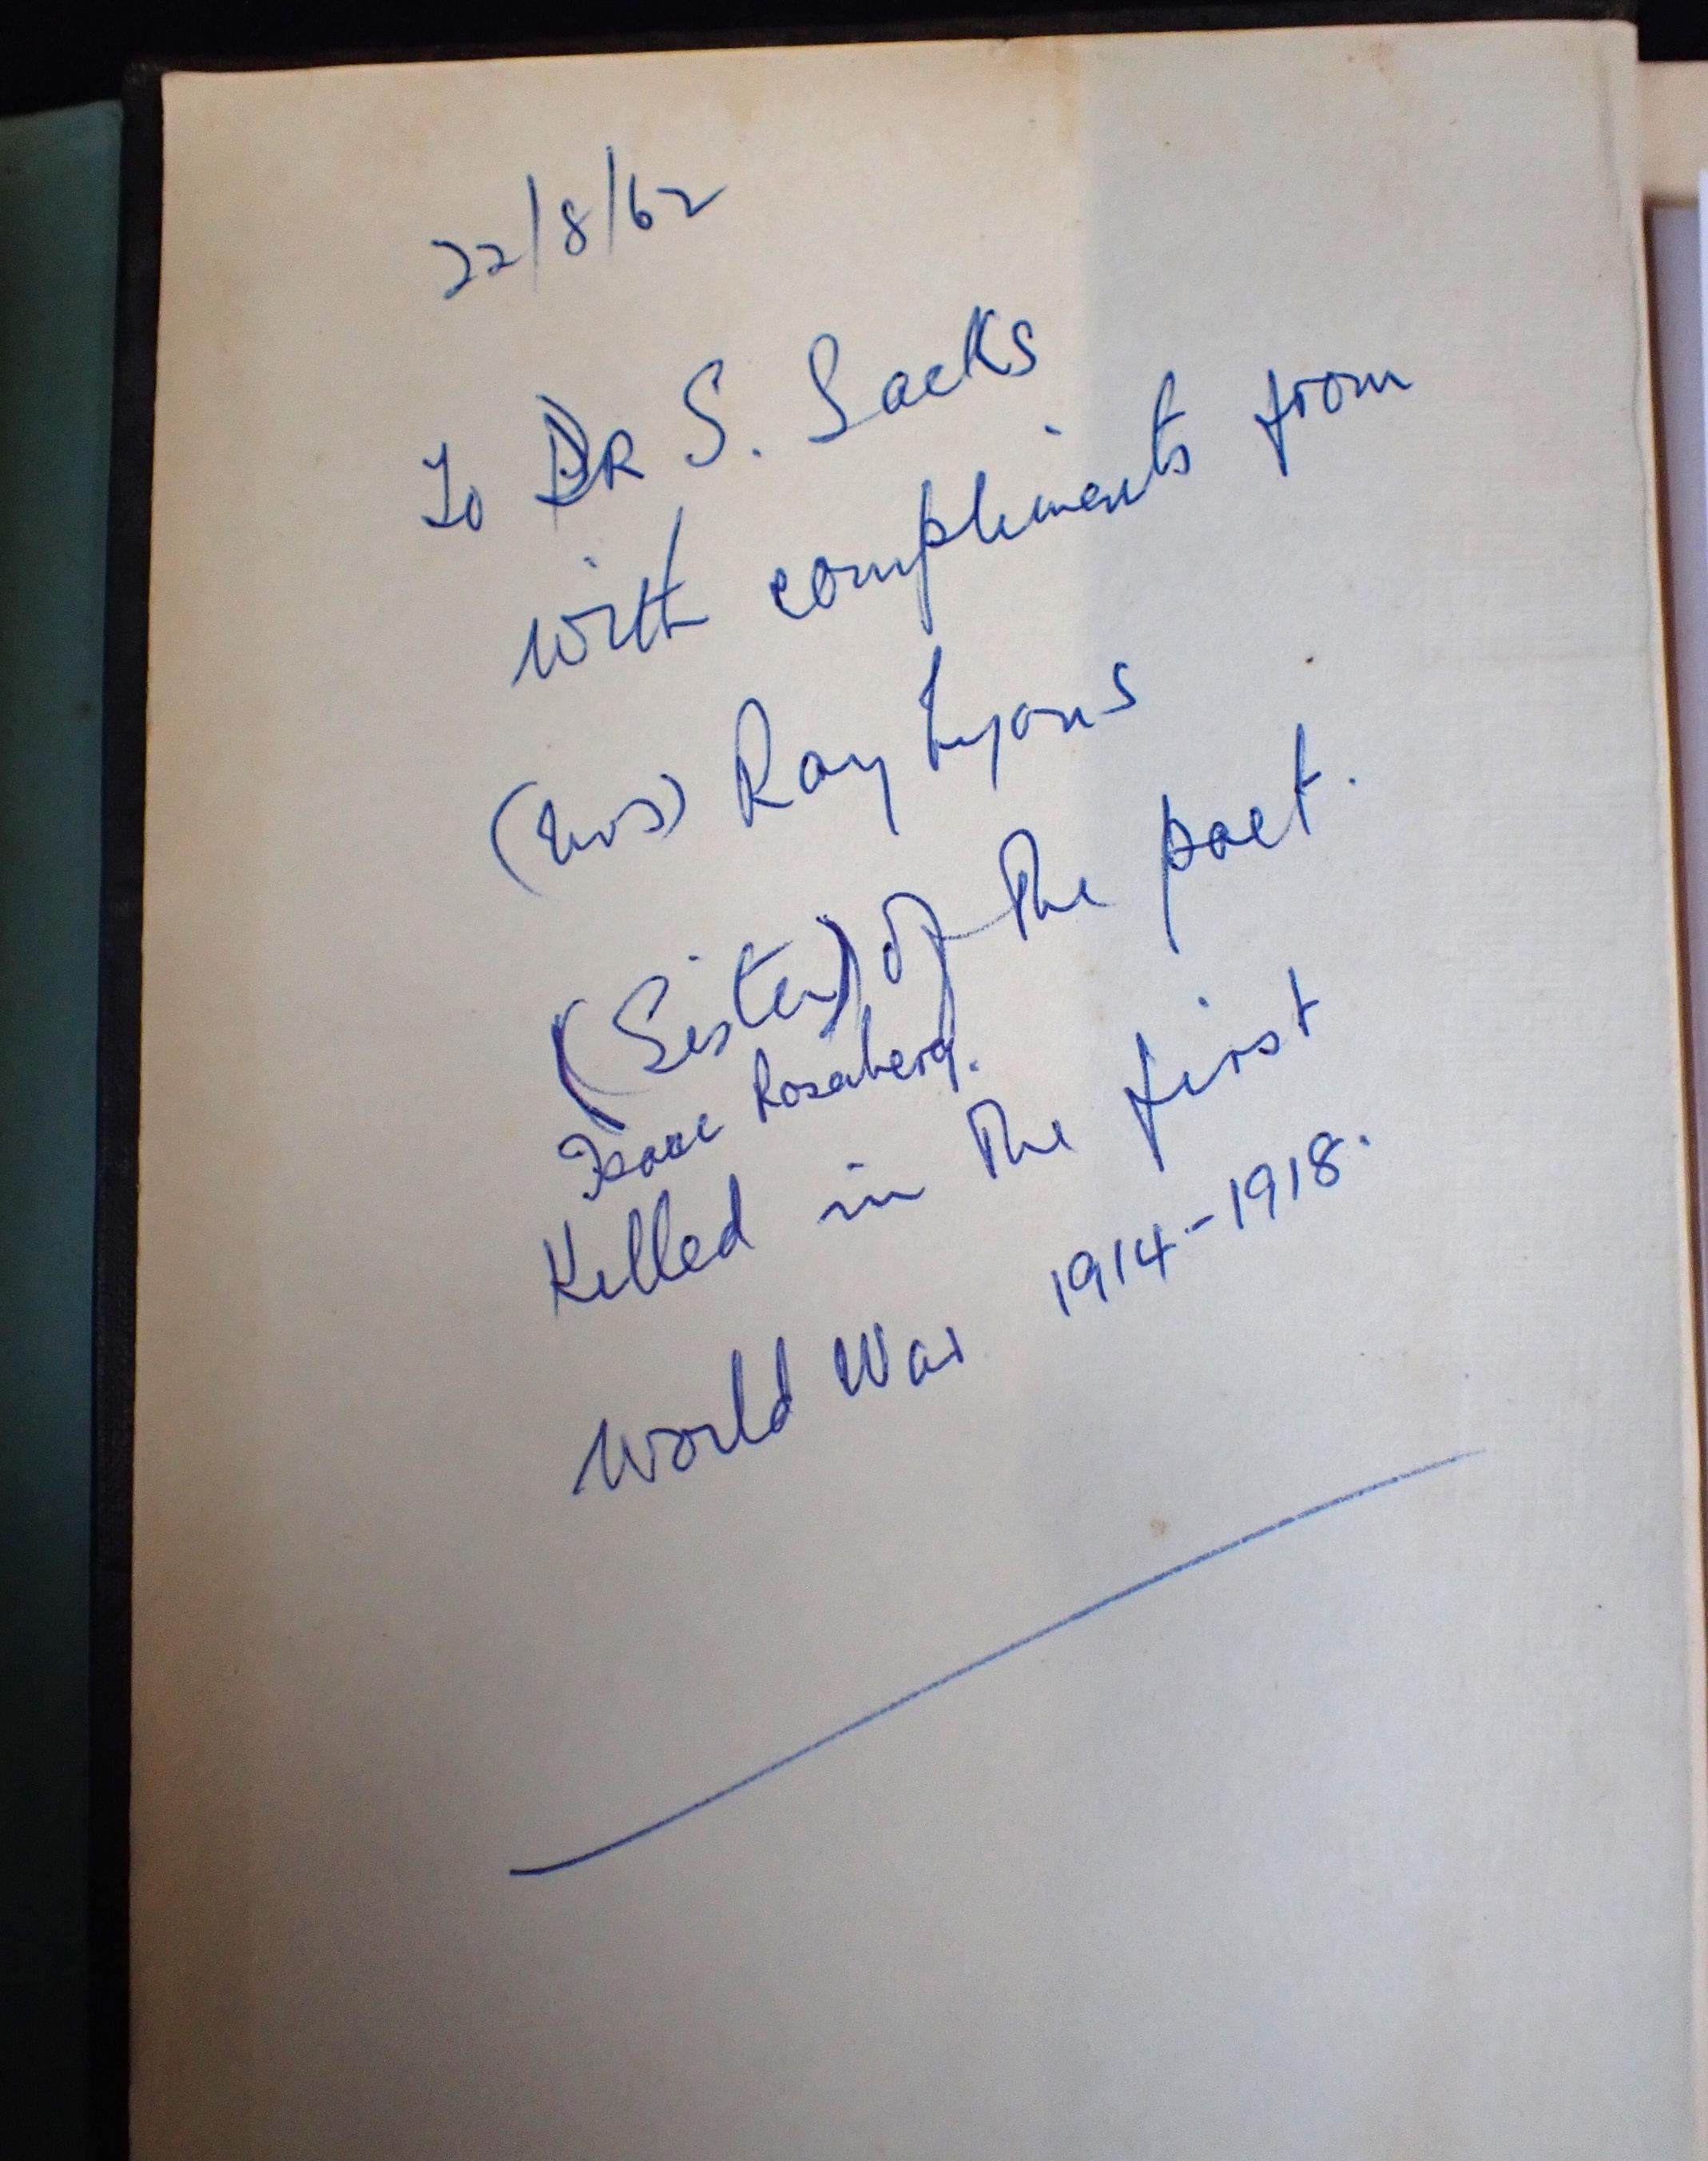 22/8/62
To DR S. Sacks
with compliments from
(Mrs) Ray Lyons
(Sister) of the poet.
Isaac Rosenberg.
Killed in the first
World War 1914-1918.